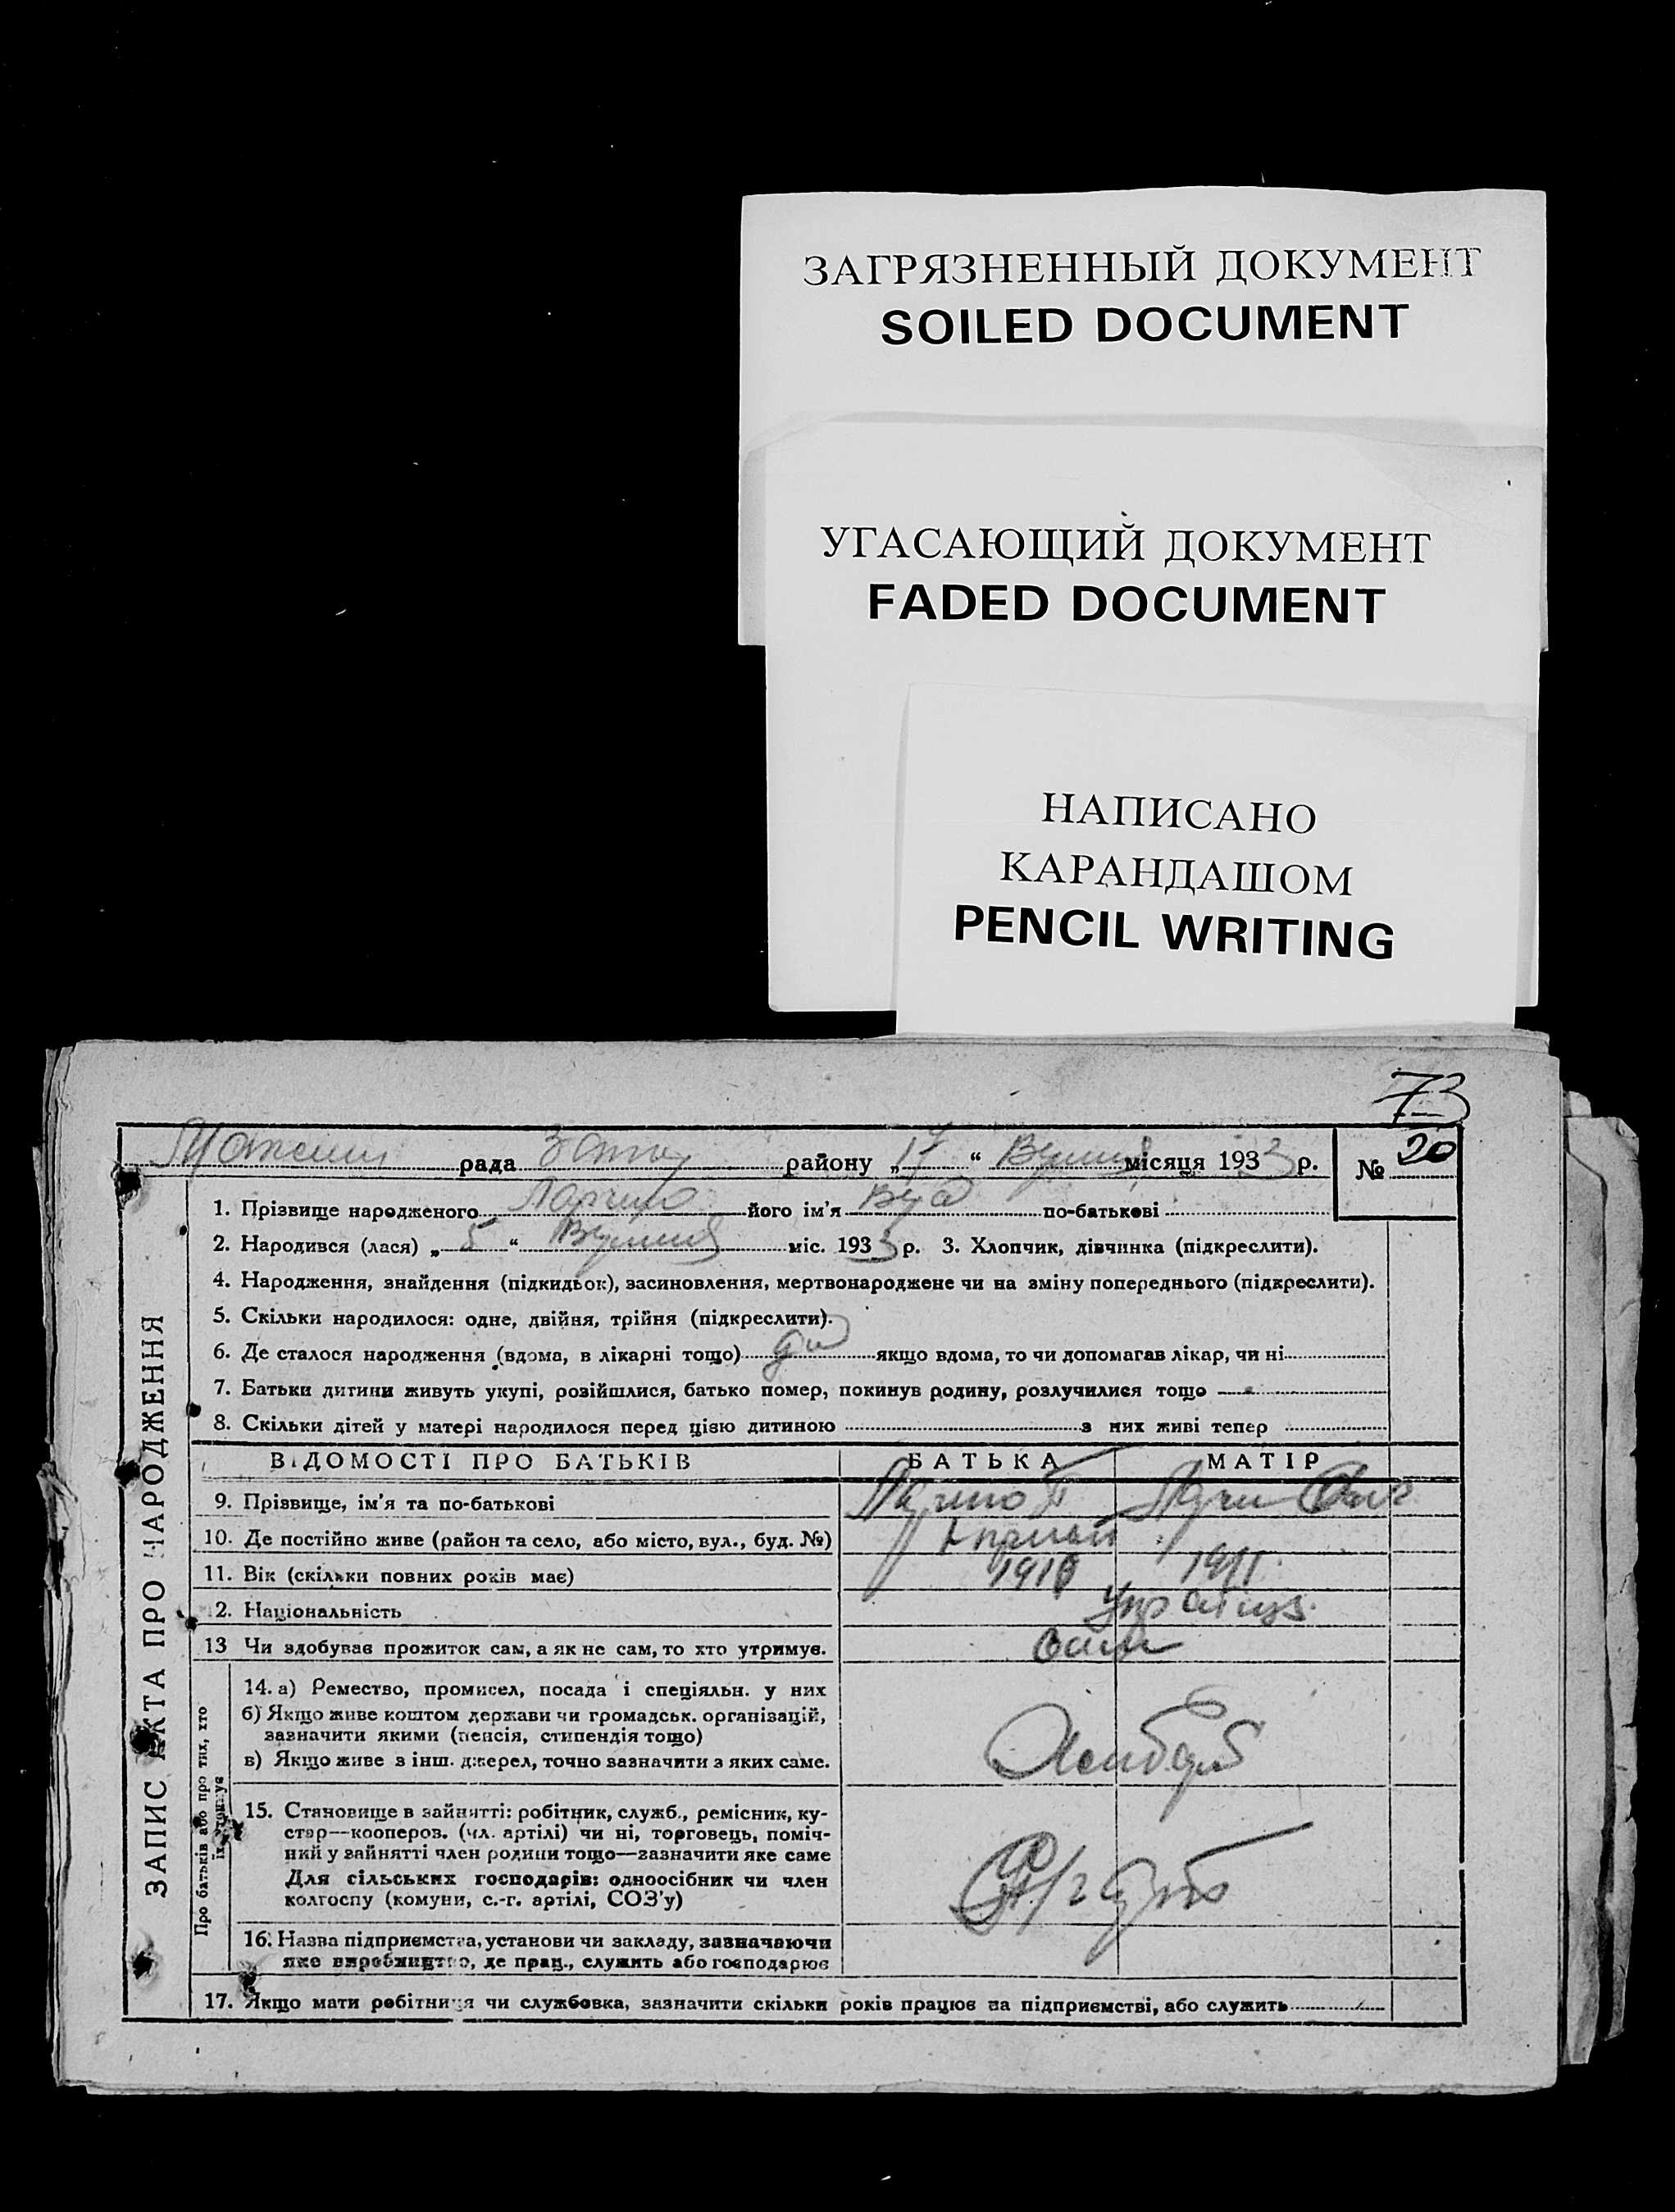 ЗАГРЯЗНЕННЫЙ ДОКУМЕНТ
SOILED DOCUMENT
УГАСАЮЩИЙ ДОКУМЕНТ
FADED DOCUMENT
НАПИСАНО
КАРАНДАШОМ
PENCIL WRITING
73
рада району „17“ місяця 1933 р. № 20
ЗАПИС АКТА ПРО НАРОДЖЕННЯ
1. Прізвище народженого його ім'я по-батькові
2. Народився (лася) „5“ міс. 1933 р. 3. Хлопчик, дівчинка (підкреслити).
4. Народження, знайдення (підкидьок), засиновлення, мертвонароджене чи на зміну попереднього (підкреслити).
5. Скільки народилося: одне, двійня, трійня (підкреслити).
6. Де сталося народження (вдома, в лікарні тощо) якщо вдома, то чи допомагав лікар, чи ні
7. Батьки дитини живуть укупі, розійшлися, батько помер, покинув родину, розлучилися тощо —
8. Скільки дітей у матері народилося перед цією дитиною з них живі тепер
ВІДОМОСТІ ПРО БАТЬКІВ БАТЬКА МАТІР
9. Прізвище, ім'я та по-батькові
10. Де постійно живе (район та село, або місто, вул., буд. №)
11. Вік (скільки повних років має) 1910 1911
12. Національність
13 Чи здобував прожиток сам, а як не сам, то хто утримує.
Про батьків або про тих, хто
їх утримує
14. а) Ремество, промисел, посада і спеціяльн. у них
б) Якщо живе коштом держави чи громадськ. організацій,
зазначити якими (пенсія, стипендія тощо)
в) Якщо живе з інш. джерел, точно зазначити з яких саме.
15. Становище в зайнятті: робітник, служб., ремісник, ку-
стар—кооперов. (чл. артілі) чи ні, торговець, поміч-
ний у зайнятті член родини тощо—зазначити яке саме
Для сільських господарів: одноосібник чи член
колгоспу (комуни, с.-г. артілі, СОЗ'у)
16. Назва підприємства, установи чи закладу, зазначаючи
яке виробництво, де прац., служить або господарює
17. Якщо мати робітниця чи службовка, зазначити скільки років працює на підприємстві, або служить